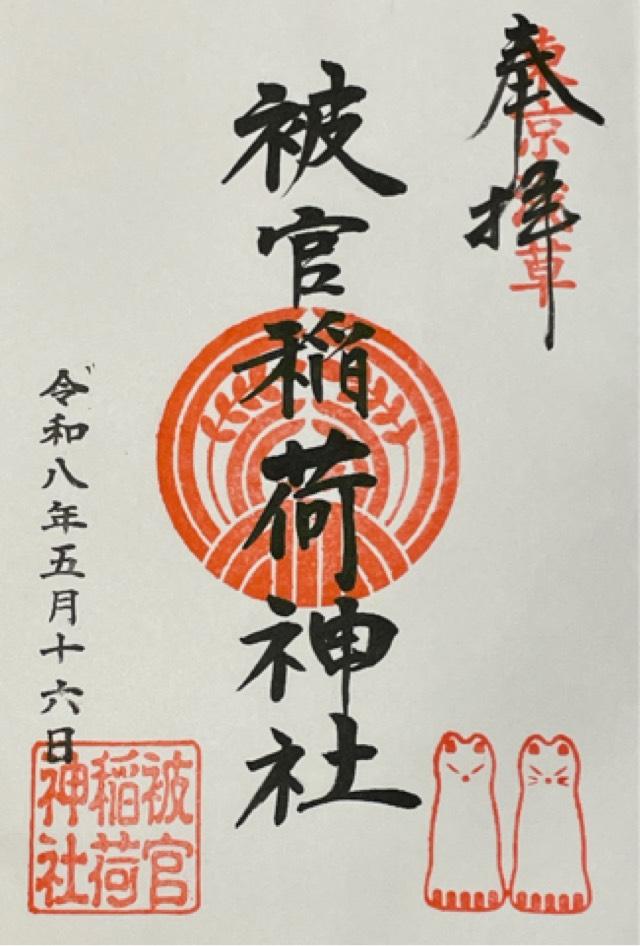 奉拝
東京浅草
被官稲荷神社
令和八年五月十六日
被官
稲荷
神社